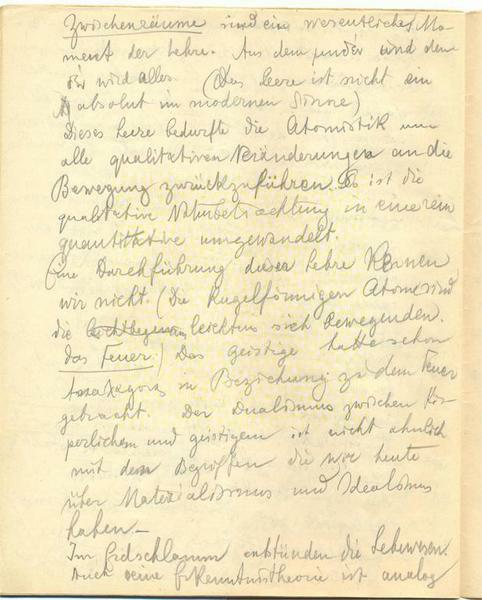 Zwischenräume sind ein wesentliches Mo-
ment der Lehre. Aus dem und dem
wird alles. (Das leere ist nicht ein
absolut im modernen Sinne)
Dieses leere bedurfte die Atomistik um
alle qualitativen Veränderungen an die
Bewegung zurückzuführen. Es ist die
qualitative Naturbetrachtung in eine rein
quantitative umgewandelt.
Eine Durchführung dieser Lehre kennen
wir nicht. (Die kugelförmigen Atome sind
die leichtus sich bewegenden.
das Feuer.) Das geistige hatte schon
in Beziehung zu dem Feuer
gebracht. Der Dualismus zwischen Kör-
perlichem und geistigem ist nicht ähnlich
mit den Begriffen die wir heute
über Materialismus und Idealismus
haben.—
Im Erdschlamm entstünden die Lebewesen.
Auch seine Erkenntnistheorie ist analog